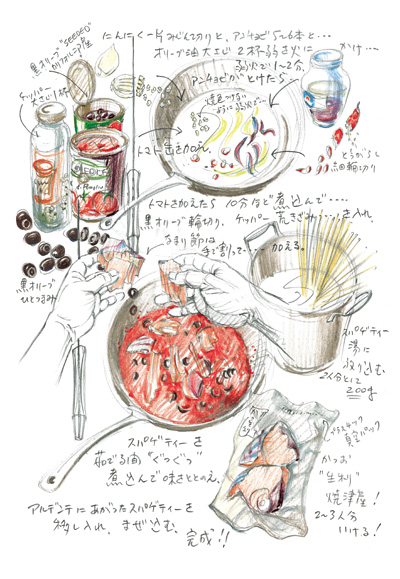 にんにく一片みじん切りと、アンチョビ5〜6本と…
オリーブ油大さじ2杯弱を火にかけ…
弱火で1〜2分、
アンチョビがとけたら…
焼色つけないように弱火で…
黒オリーブ"SEEDED"
カリフォルニア産
ケッパー
大さじ1杯
トマト缶を加え、
とうがらし
小口輪切り
トマトを加えたら10分ほど煮込んで….
黒オリーブ輪切り、ケッパー荒きざみ….を入れ
なまり節は
手で割って….加える。
黒オリーブ
ひとつまみ
スパゲティー
湯に
放り込む
2人分として
200g
スパゲティーを
茹でる間"ぐつぐつ"
煮込んで味をととのえ、
プラスチック
真空パック
かつお
"生利"
焼津産!
2〜3人分
いける!
アルデンテにあがったスパゲティーを
移し入れ、まぜ込む、
完成!!